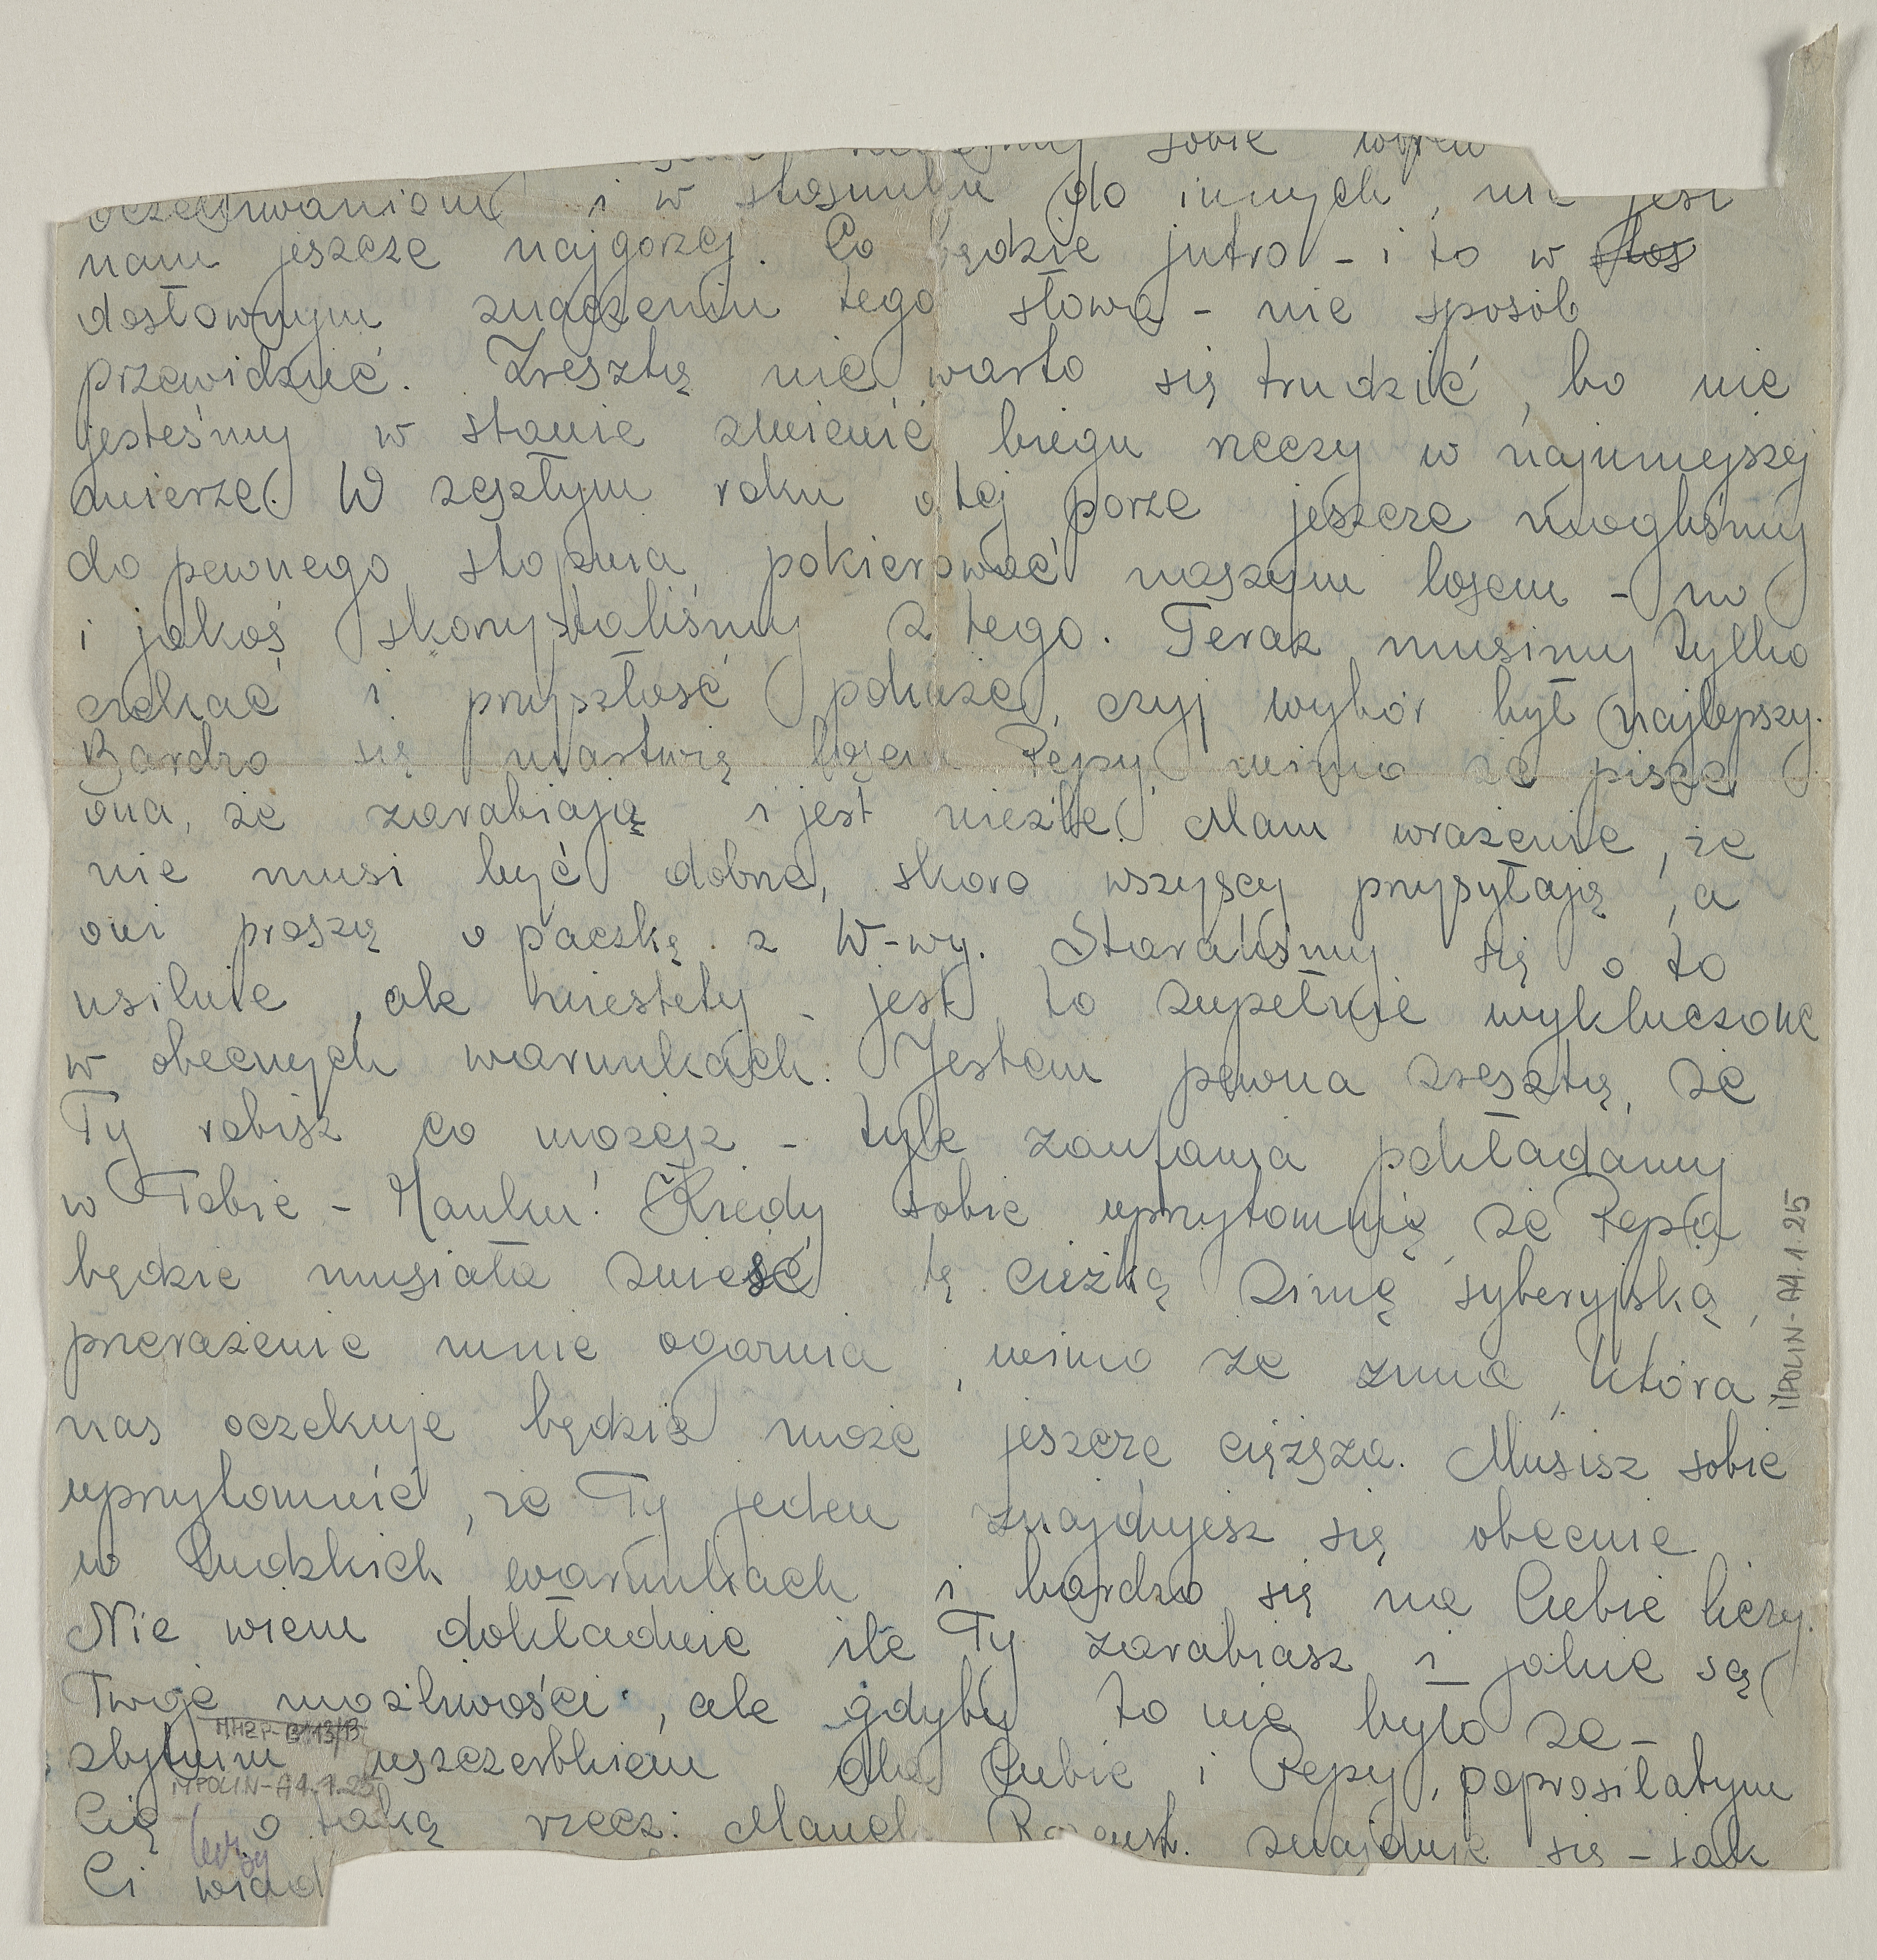 sobie wbrew
oczekiwaniom i w stosunku do innych, nie jest
nam jeszcze najgorzej. Co będzie jutro - i to w stos
dosłownym znaczeniu tego słowa - nie sposób
przewidzieć. Zresztą nie warto się trudzić, bo nie
jesteśmy w stanie zmienić biegu rzeczy w najmniejszej
mierze. W zeszłym roku o tej porze jeszcze mogliśmy
do pewnego stopnia pokierować naszym losem - no
i jakoś skorzystaliśmy z tego. Teraz musimy tylko
czekać i przyszłość pokaże, czyj wybór był najlepszy.
Bardzo się martwię losem Pepy, mimo że pisze
ona, że zarabiają i jest nieźle. Mam wrażenie, że
nie musi być dobrze, skoro wszyscy przysyłają, a
oni proszą o paczkę z W-wy. Staraliśmy się o to
usilnie, ale niestety - jest to zupełnie wykluczone
w obecnych warunkach. Jestem pewna zresztą, że
Ty robisz co możesz - tyle zaufania pokładamy
w Tobie - Maniku! Kiedy sobie uprzytomnię, że Pepa
będzie musiała znieść tę ciężką zimę syberyjską,
przerażenie mnie ogarnia, mimo że zima, która
nas oczekuje będzie może jeszcze cięższa. Musisz sobie
uprzytomnić, że Ty jeden znajdujesz się obecnie
w ludzkich warunkach i bardzo się na Ciebie liczy.
Nie wiem dokładnie ile Ty zarabiasz i jakie są
Twoje możliwości, ale gdyby to nie było ze-
zbytnim uszczerbkiem dla Ciebie i Pepy, poprosiłabym
Cię o taką rzecz: znajduje się - jak
Ci wiad
MPOLIN-A4.1.25
MHZP-B113/13
MPOLIN-A4.1.25